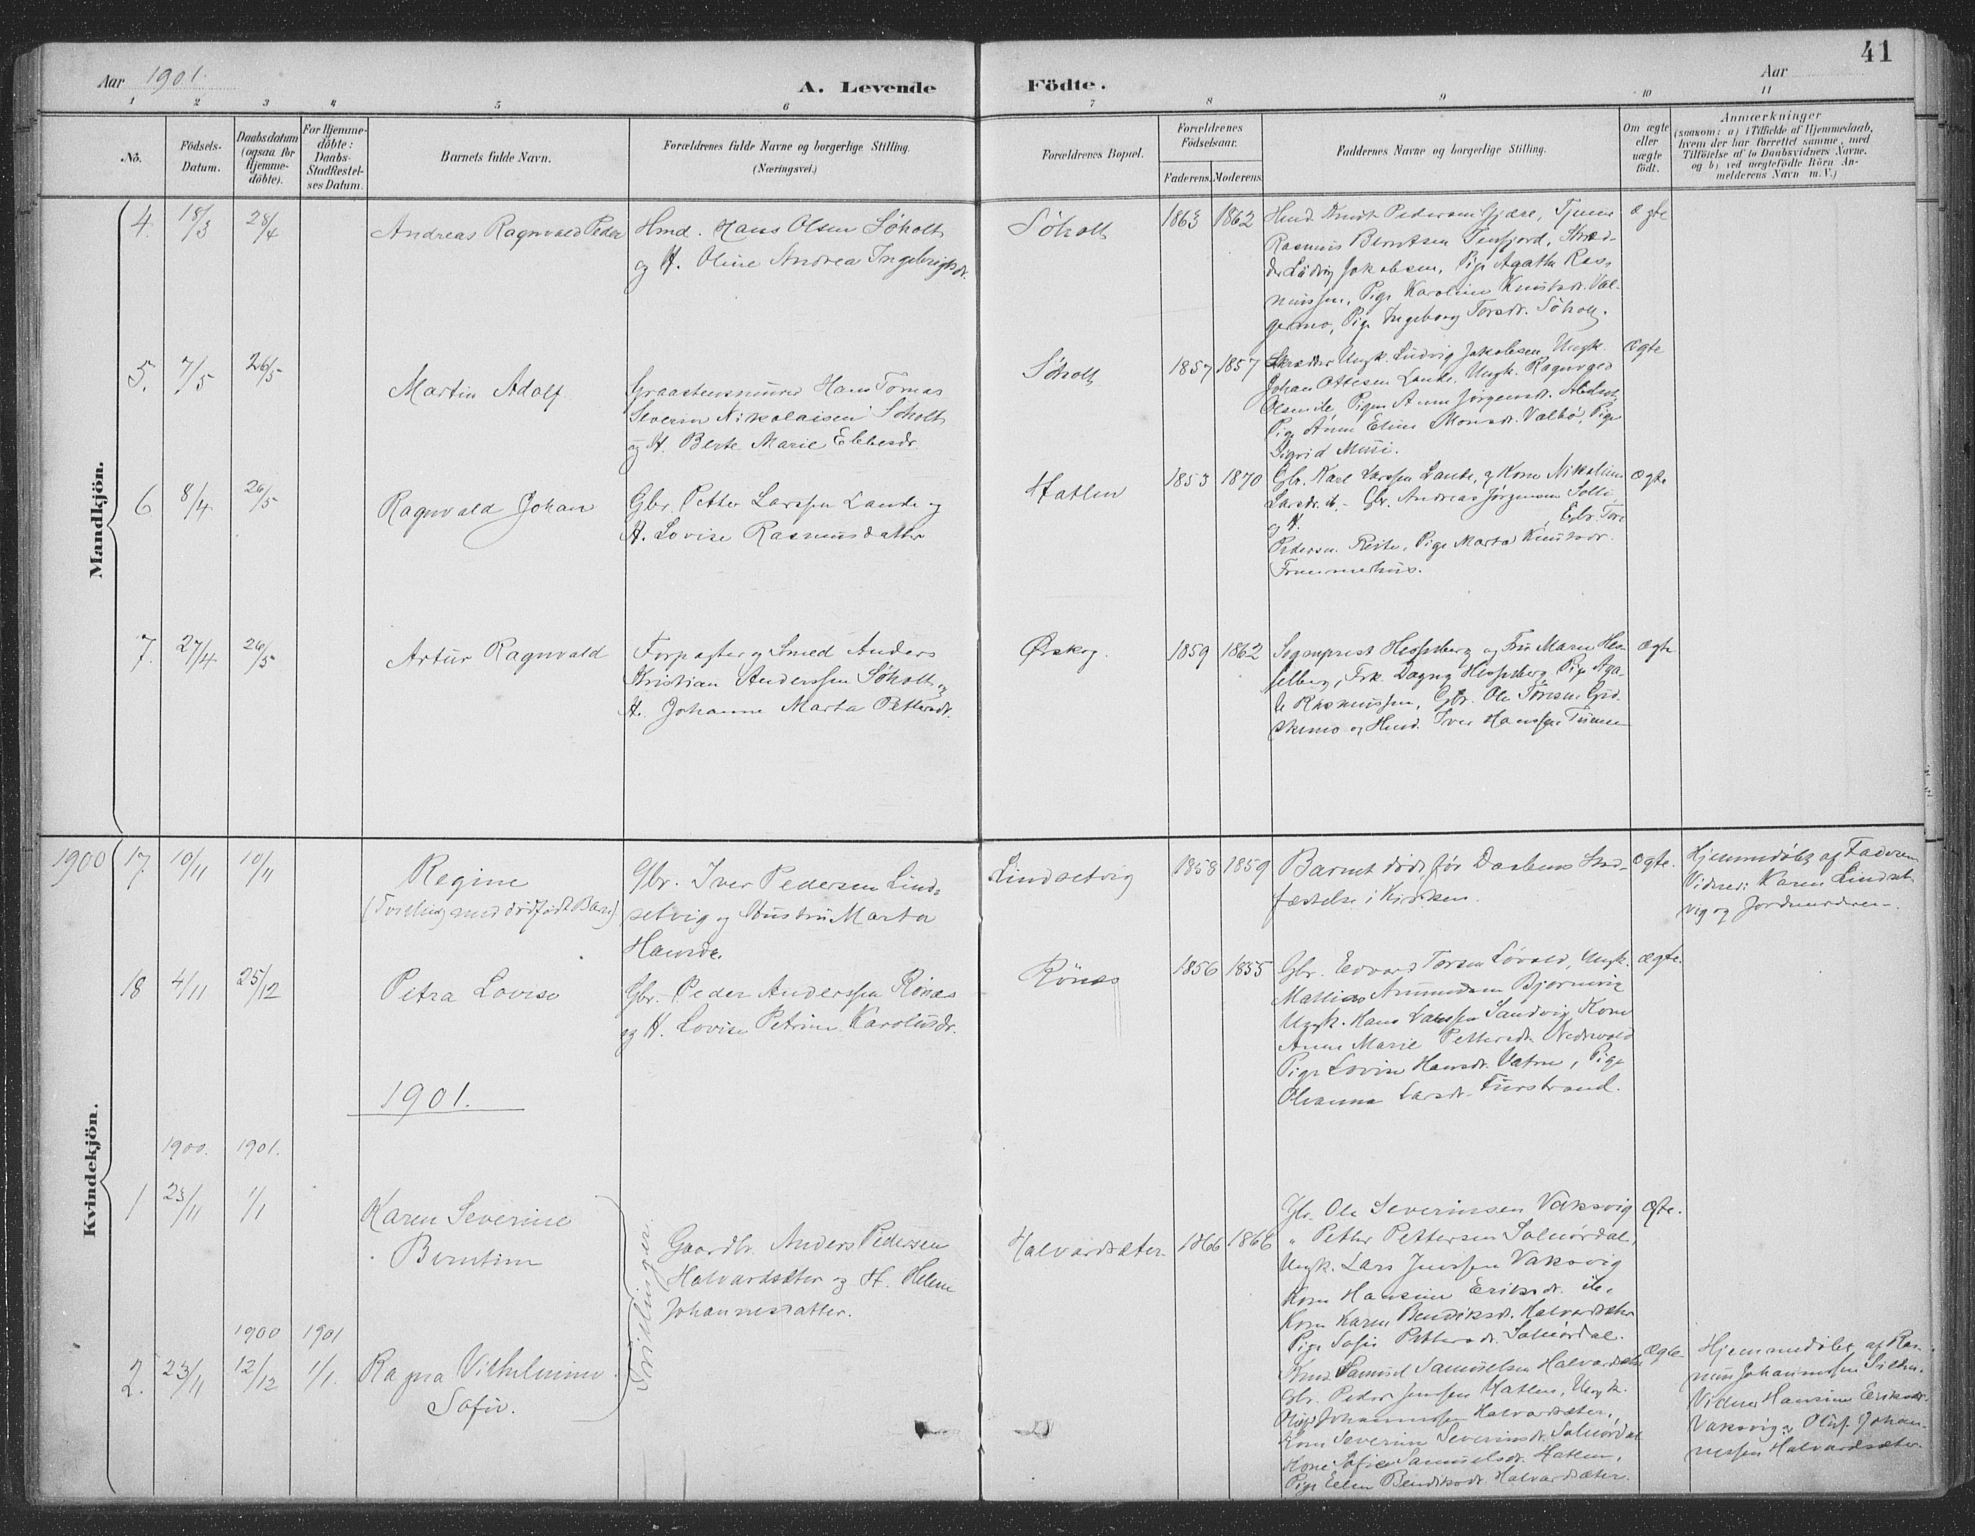 41
Aar 1901.
A. Levende Födte.
Aar
1 2 3 4 5 6 7 8 9 10 11
No.
Födsels-
Datum.
Daabsdatum
(ogsaa for
Hjemme-
döbte).
For Hjemme-
döbte:
Daabs-
Stadfæstel-
ses Datum.
Barnets fulde Navn.
Forældrenes fulde Navne og borgerlige Stilling.
(Næringsvei.)
Forældrenes Bopæl.
Forældrenes
Födselsaar.
Faderens.
Moderens.
Faddernes Navne og borgerlige Stilling.
Om ægte
eller
uægte
födt.
Anmærkninger
(saasom: a) i Tilfælde af Hjemmedaab,
hvem der har forrettet samme, med
Tilföielse af to Daabsvidners Navne.
og b) ved uægtefödte Börn An-
melderens Navn m. V.)
Mandkjön.
4. 18/3 28/4
Andreas Ragnvald Peder
Hmd. Hans Olsen Søholt
og H. Oline Andrea Ingebrigtsdr.
Søholt
1863 1862
Hmd. Knut Pedersen Gjære, Tjener
Rasmus Berntsen Tenfjord, Skræd-
der Ludvig Jakobsen, Pige Agathe Ras-
mussen, Pige Karoline Knutsdr. Val-
germo, Pige Ingeborg Torsdr. Søholt.
ægte
5. 7/5 26/5
Martin Adolf
Graastensmurer Hans Tomas
Severin Nikolaisen Søholt
og H. Berte Marie Ebbesdr.
Søholt
1857 1857
Skrædder Ungk. Ludvig Jakobsen, Ungk.
Johan Ottesen Lande, Ungk. Ragnvald
Olsen ile, Pigen Anne Jørgensdr.
Pige Anne Eline Monsdr. Valbø, Pige
Sigrid Musi.
ægte
6 8/4 26/5
Ragnvald Johan
Gbr. Petter Larssen Lande og
H. Lovise Rasmusdatter
Hatlen
1853 1870
Gbr. Karl Larssen Lande, og Kone Nikoline
Larsdr. d. - Gbr. Andreas Jørgensen Solli
og H. Gbr. Tore
Pedersen Reite, Pige Marta Knutsdr.
Frammerhus.
ægte
7. 27/4 26/5
Artur Ragnvald
Forpagter og Smed Anders
Kristian Anderssen Søholt og
H. Johanne Marta Pettersdr.
Ørskog.
1859 1862
Sogneprest Hesselberg og Fru Marie Hes-
selberg, Frk. Dagny Hesselberg, Pige Aga-
te Rasmussen, Gbr. Ole Toresen Gjid-
skemo og Hmd. Iver Hanssen
ægte
1900
Kvindekjön.
17. 10/11 10/11
Regine
(Tvilling med dødfødt Barn)
Gbr. Iver Pedersen Lind-
setvig og Hustru Marta
Hansdr.
Lindsetvig
1858 1859
Barnet døde før Daabens Stad-
fæstelse i Kirken.
ægte.
Hjemmedøbt af Faderen
Vidner: Karen Lindset-
vig og Jordmoderen.
18 4/11 25/12
Petra Lovise
Gbr. Peder Anderssen Rönæs
og H. Lovise Petrine Karolusdr.
Rönæs
1856 1855
Gbr. Edvard Torsen Løvold, Ungk.
Mathias Amundsen Bjørnvig
Ungk. Hans Larssen Sandvig, Kone
Anne Marie Pettersdr. Nedrevold
Pige Lovise Hansdr. Vatne, Pige
Olianna Larsdr. Furstrand.
ægte.
1901.
1900. 1901.
1 23/11 1/1
Karen Severine
Berntine
Tvillinger.
Gaardbr. Anders Pedersen
Halvardsæter og H. Helene
Johannesdatter.
Halvardsæter
1866 1866
Gbr. Ole Severinsen Vaksvig
" Petter Pettersen Solnørdal,
Ungk. Lars Jenssen Vaksvig
Kone Hansine Eriksdr. ile,
Kone Karen Bendiksdr. Halvardsæter
Pige Sofie Pettersdr. Solnørdal.
Ægte.
1900 1901
2. 23/11 12/12 1/1.
Ragna Vilhelmine
Sofie.
Hmd Samuel Samuelsen Halvardsæter
Gbr. Peder Jenssen Hatlen, Ungk.
Oluf Johannessen Halvardsæter,
Kone Severine Severinsdr. Solnørdal
Kone Sofie Samuelsdr. Hatlen,
Pige Elen Bendiksdr. Halvardsæter.
Ægte
Hjemmedøbt af Ras-
mus Johannessen
Vidner Hansine Eriksdr.
Vaksvig og Oluf Johan-
nessen Halvardsæter.